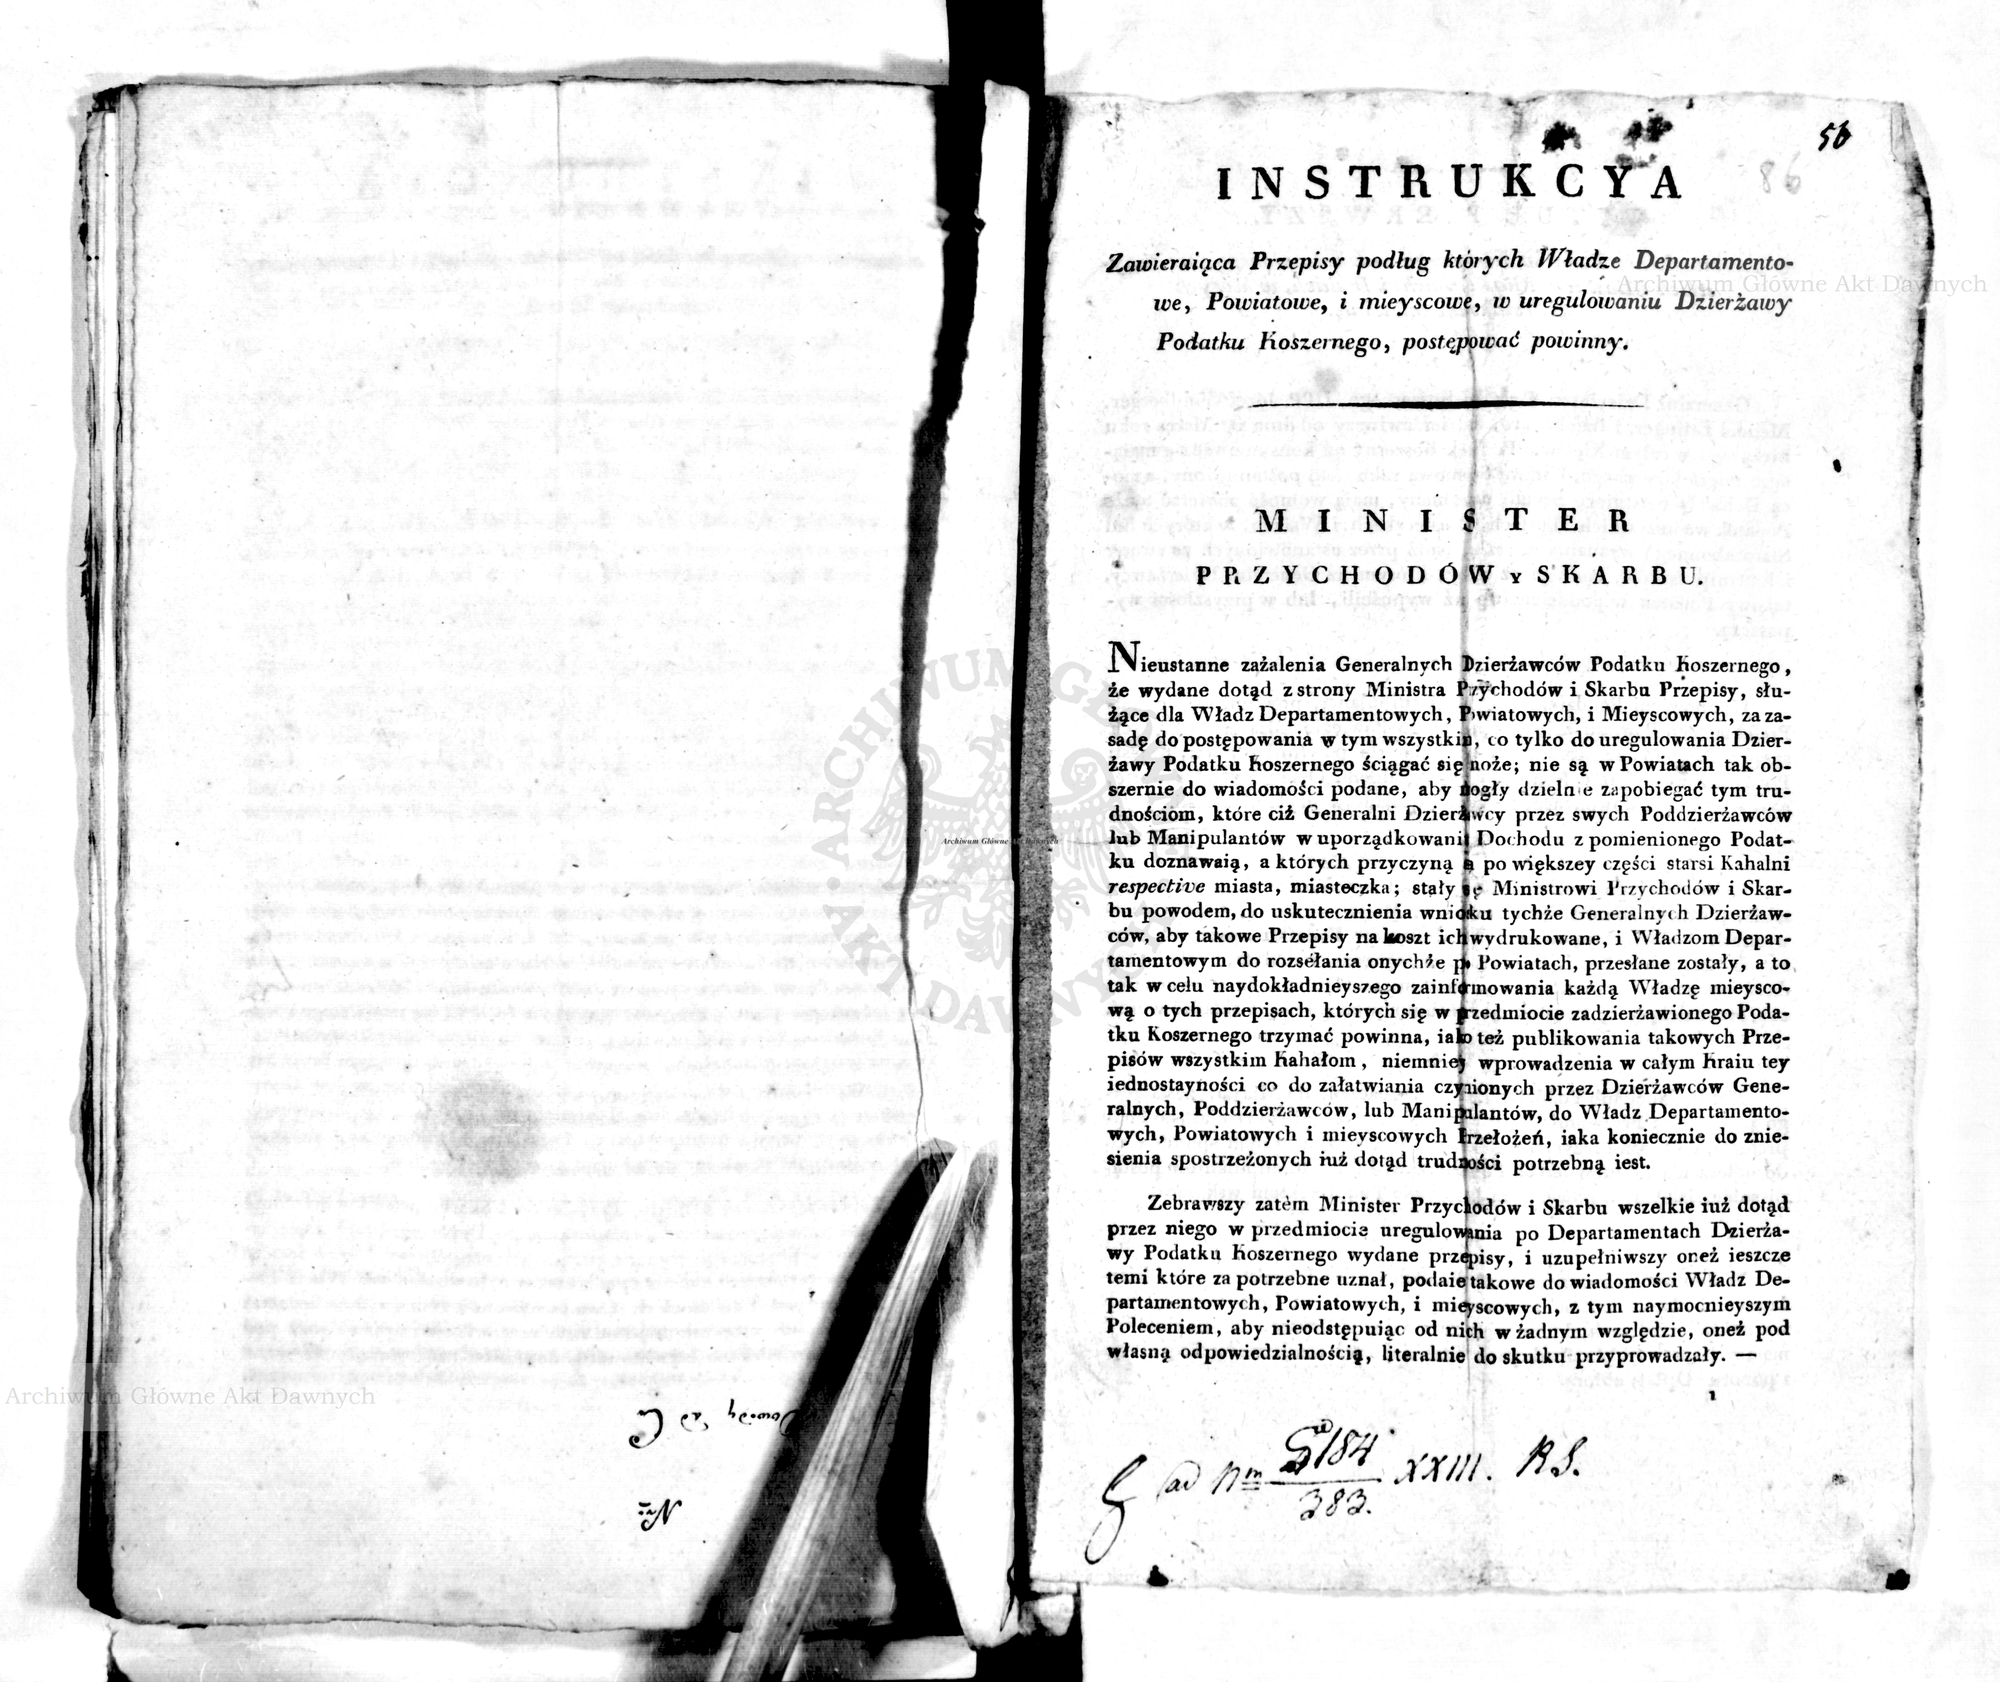 56
86
INSTRUKCYA
Zawieraiąca Przepisy podług których Władze Departamento-
we, Powiatowe, i mieyscowe, w uregulowaniu Dzierżawy
Podatku Koszernego, postępować powinny.
MINISTER
PRZYCHODÓW Y SKARBU.
Nieustanne zażalenia Generalnych Dzierżawców Podatku Koszernego,
że wydane dotąd z strony Ministra Przychodów i Skarbu Przepisy, słu-
żące dla Władz Departamentowych, Powiatowych, i Mieyscowych, za za-
sadę do postępowania w tym wszystkim, co tylko do uregulowania Dzier-
żawy Podatku Koszernego ściągać się może; nie są w Powiatach tak ob-
szernie do wiadomości podane, aby mogły dzielnie zapobiegać tym tru-
dnościom, które ciż Generalni Dzierżawcy przez swych Poddzierżawców
lub Manipulantów w uporządkowaniu Dochodu z pomienionego Podat-
ku doznawaią, a których przyczyną są po większey części starsi Kahalni
respective miasta, miasteczka; stały się Ministrowi Przychodów i Skar-
bu powodem, do uskutecznienia wniosku tychże Generalnych Dzierżaw-
ców, aby takowe Przepisy na koszt ich wydrukowane, i Władzom Depar-
tamentowym do rozséłania onychże po Powiatach, przesłane zostały, a to
tak w celu naydokładnieyszego zainformowania każdą Władzę mieysco-
wą o tych przepisach, których się w przedmiocie zadzierżawionego Poda-
tku Koszernego trzymać powinna, iako też publikowania takowych Prze-
pisów wszystkim Kahałom, niemniey wprowadzenia w całym Kraiu tey
iednostayności co do załatwiania czynionych przez Dzierżawców Gene-
ralnych, Poddzierżawców, lub Manipulantów, do Władz Departamento-
wych, Powiatowych i mieyscowych Przełożeń, iaka koniecznie do znie-
sienia spostrzeżonych iuż dotąd trudności potrzebną iest.
Zebrawszy zatém Minister Przychodów i Skarbu wszelkie iuż dotąd
przez niego w przedmiocie uregulowania po Departamentach Dzierża-
wy Podatku Koszernego wydane przepisy, i uzupełniwszy oneż ieszcze
temi które za potrzebne uznał, podaie takowe do wiadomości Władz De-
partamentowych, Powiatowych, i mieyscowych, z tym naymocnieyszym
Poleceniem, aby nieodstępuiąc od nich w żadnym względzie, oneż pod
własną odpowiedzialnością, literalnie do skutku przyprowadzały. —
1
ad Nm 184
383. XXIII. R.S.
Archiwum Główne Akt Dawnych
Archiwum Główne Akt Dawnych
Archiwum Główne Akt Dawnych
ARCHIWUM GŁÓWNE AKT DAWNYCH